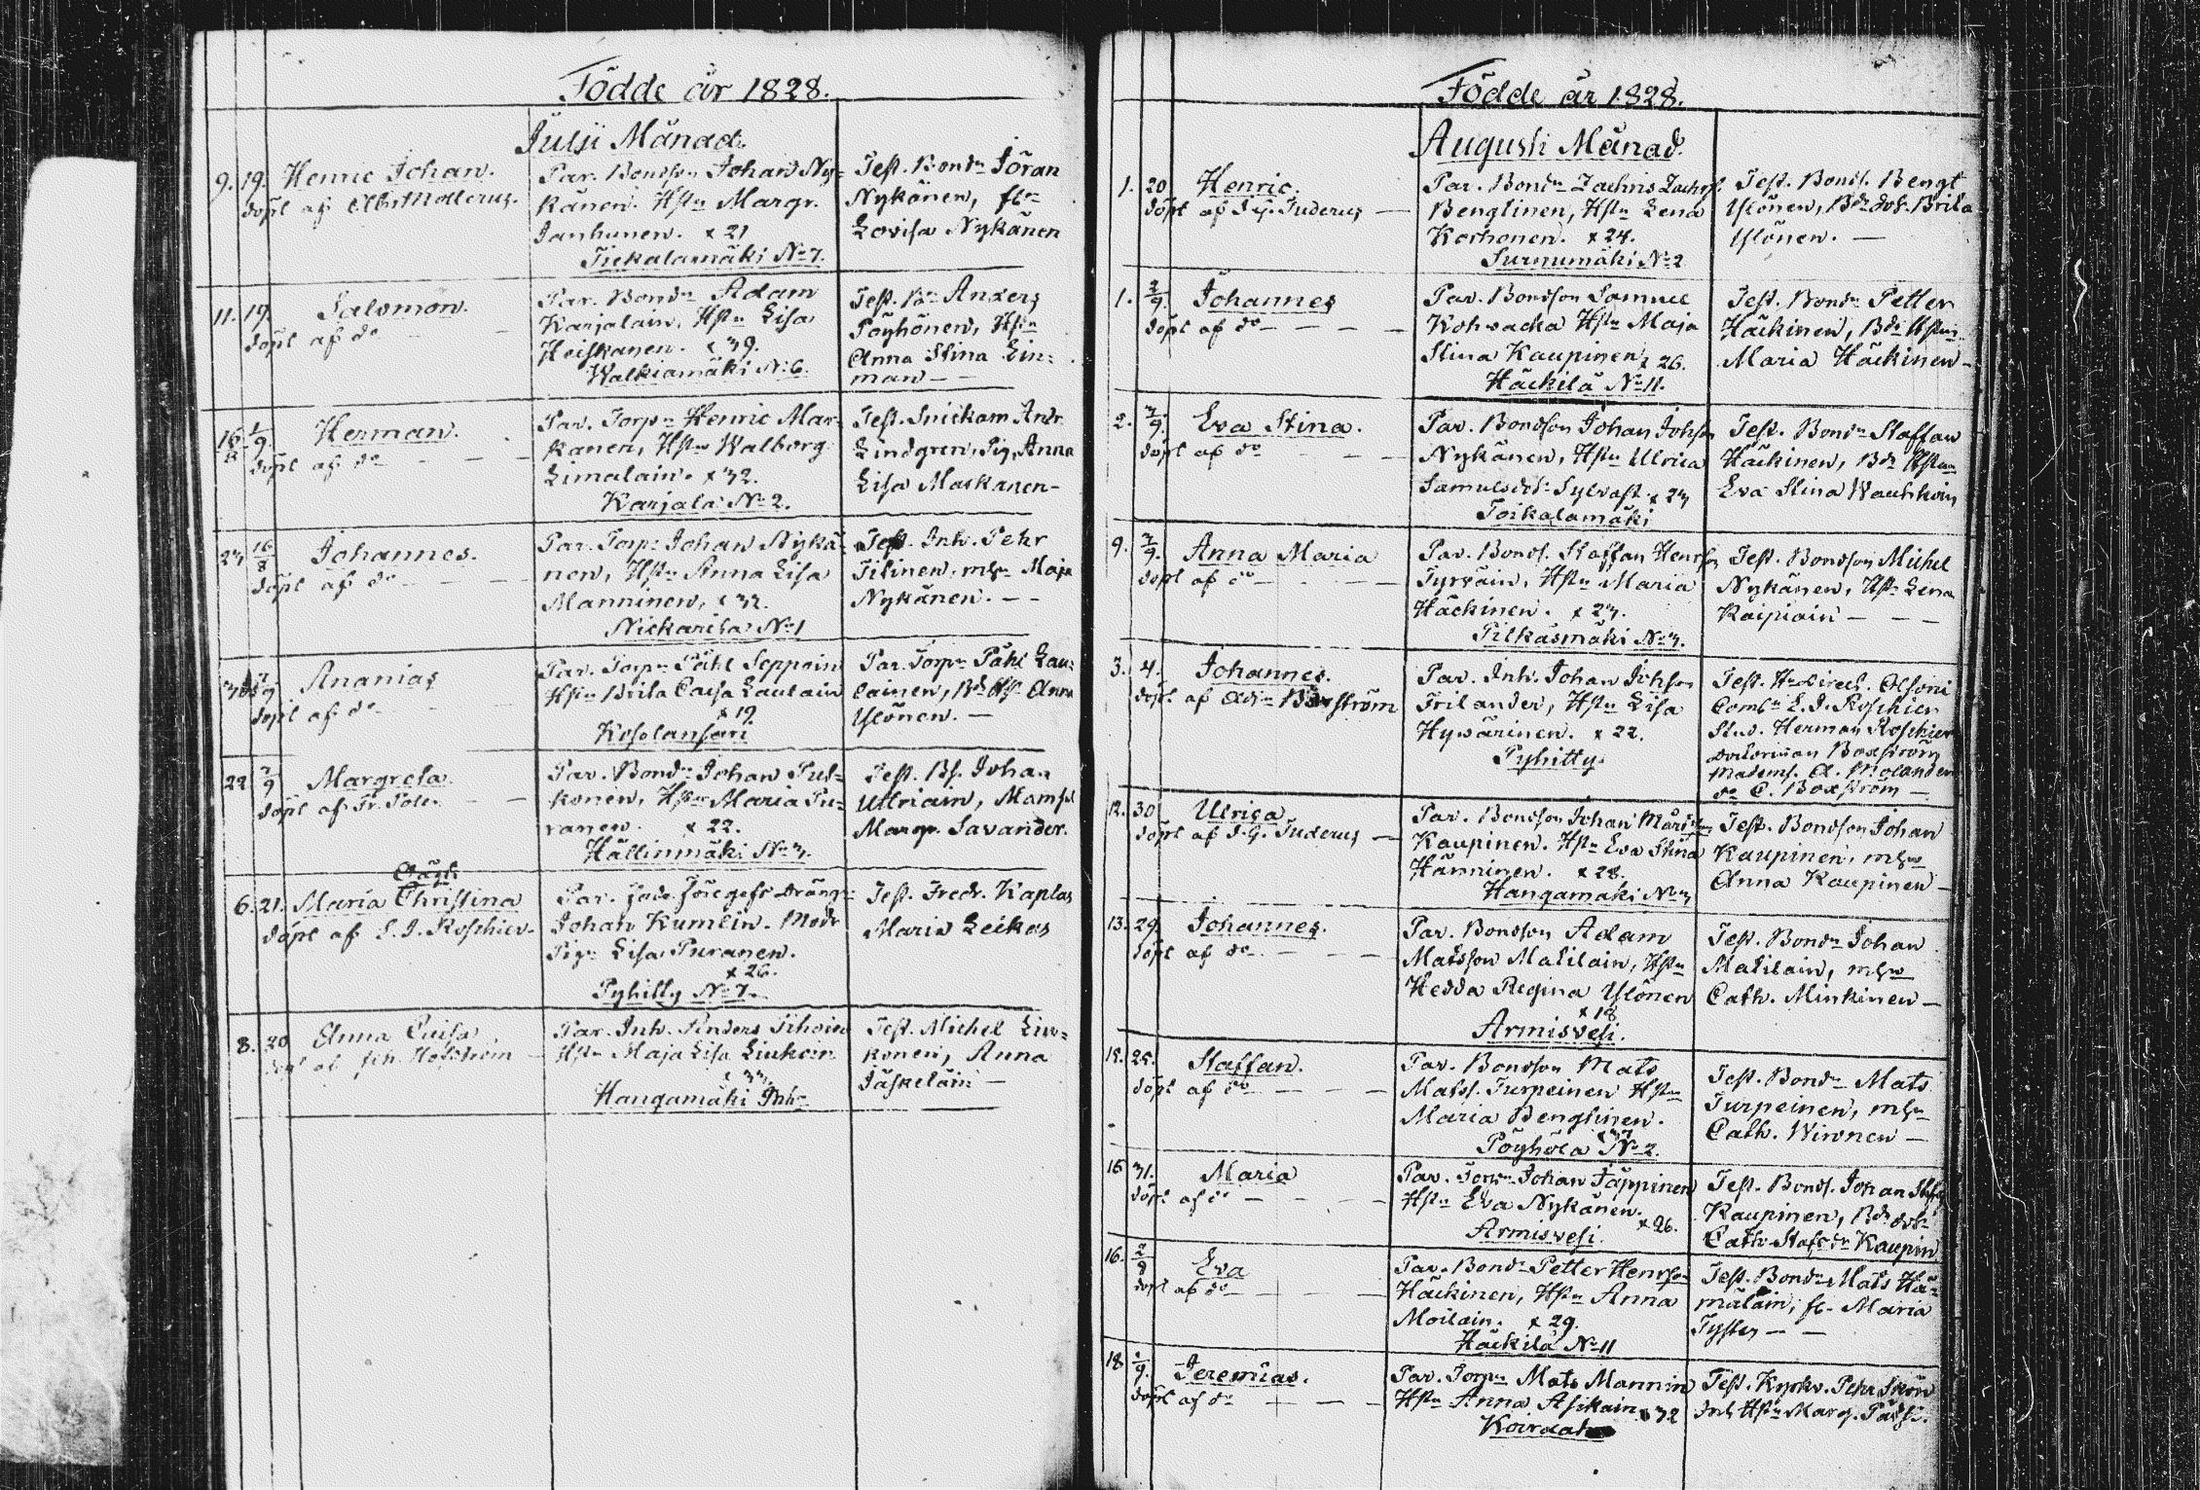 Födde år 1828.
Julii Månad.
9. 19. Henric Johan.
döpt af Alb. Mollerus.
Par. Bondson Johan Ny-
känen. Hstr Margr.
Janhunen. x 21
Tiekalamäki No 7.
Test. Bondn Jöran
Nykänen, fln
Lovisa Nykänen
11. 19. Salomon.
döpt af do
Par. Bondn Adam
Karjalain, Hstn Lisa
Heiskanen. x 39.
Walkiamäki No 6.
Test. Bn Anders
Pöyhönen, Hstn
Anna Stina Lin-
man
16 1/9. Herman.
döpt af do
Par. Torpn Henric Mar-
kanen, Hstn Walborg
Limalain. x 32.
Karjala No 2.
Test. Snickarn Andr.
Lindgren, Pig. Anna
Lisa Maskanen
23 16/8 Johannes.
döpt af do
Par. Torpn Johan Nykä-
nen, Hstn Anna Lisa
Manninen, x 32.
Nickarila No 1
Test. Inh. Pehr
Titinen, mhn Maja
Nykänen.
Ananias
döpt af do
Par. Torpn Påhl Seppäin
Hstn Brita Caisa Lautain
x 19
Kosolansari
Par. Torpn Påhl Lau-
tainen, Bd Hst Anna
Ylönen.
22 7/9 Margreta.
döpt af Fr. Poler
Par. Bondn Johan Pul-
konen, Hstn Maria Pu-
ranen. x 22.
Hällinmäki No 3.
Test. Bs. Johan
Ullriain, Mamsel
Margr. Savander.
Oägt.
6. 21. Maria Christina
döpt af E. J. Roschier.
Par. föregifv. Dräng
Johan Kumlin. Modr
Pign Lisa Puranen.
x 26.
Pyhitty No 7.
Test. Fredr. Kaplas
Maria Leikas
8. 20 Anna Caisa
Par. Inh. Anders Tihoin
Hstn Maja Lisa Liukoin
x 33.
Hangamäki Inhr
Test. Michel Liu-
konen, Anna
Jäskeläin
Födde år 1828.
Augusti Månad.
1. 20 Henric.
döpt af J. G. Tuderus
Par. Bondn Zachris Zachrs.
Bengtinen, Hstn Lena
Korhonen. x 24.
Surnumäki No 2
Test. Bonds. Bengt
Ylönen, Bds dot. Brita
Ylönen.
1. 2/9. Johannes
döpt af do
Par. Bondson Samuel
Kohvacka Hstn Maja
Stina Kaupinen x 26.
Häckilä No 11.
Test. Bondn Petter
Häckinen, Bds Hstn
Maria Häckinen
2. 7/9. Eva Stina.
döpt af do
Par. Bondson Johan Johsson
Nykänen, Hstn Ulrica
Samulsdot. Sylvast. x 23
Toikalamäki
Test. Bondn Staffan
Häckinen, Bds Hstrn
Eva Stina Wauhkoin
9. 7/9. Anna Maria
döpt af do
Par. Bonds. Staffan Henrson
Tyrväin, Hstn Maria
Häckinen. x 23.
Pilkäsmäki No 3.
Test. Bondson Michel
Nykänen, Hstn Lena
Kaipiain
3. 4. Johannes.
döpt af Adjn Boxström
Par. Inh. Johan Johson
Frilander, Hstn Lisa
Hyvärinen. x 22.
Pyhitty
Test. Olsoni
Comln E. J. Roschier
Stud. Herman Roschier
Boxström
Madems. A. Molander
do C. Boxström
12. 30 Ulrica
döpt af J. G. Tuderus
Par. Bondson Johan Mårtson
Kaupinen. Hstn Eva Stina
Hänninen. x 28.
Hangamäki No 3
Test. Bondson Johan
Kaupinen, mhn
Anna Kaupinen
13. 29. Johannes.
döpt af do
Par. Bondson Adam
Matsson Matilain, Hstn
Hedda Regina Ylönen
x 18
Armisvesi.
Test. Bondn Johan
Matilain, mhn
Cath. Minkinen
18. 25. Staffan.
döpt af do
Par. Bondson Mats
Matss. Turpeinen Hstn
Maria Bengtinen.
x 33
Pöyhölä No 2.
Test. Bondn Mats
Turpeinen, mhn
Cath. Wirnen
16 31. Maria
döpt af do
Par. Torpn Johan Jäppinen
Hstn Eva Nykänen.
x 26.
Armisvesi.
Test. Bonds. Johan Staf
Kaupinen, Bds dotr
Cath. Stafsdr Kaupin
16. 2/8 Eva
döpt af do
Par. Bondn Petter Henrson
Häckinen, Hstn Anna
Moilain. x 29.
Häckilä No 11
Test. Bondn Mats Hä-
mäläin, fl. Maria
Tyster
18 1/9. Jeremias.
döpt af do
Par. Torpn Mats Mannin
Hstn Anna Asikain x 32
Test. Kyrkv. Pehr Skön
Hstn Marg.